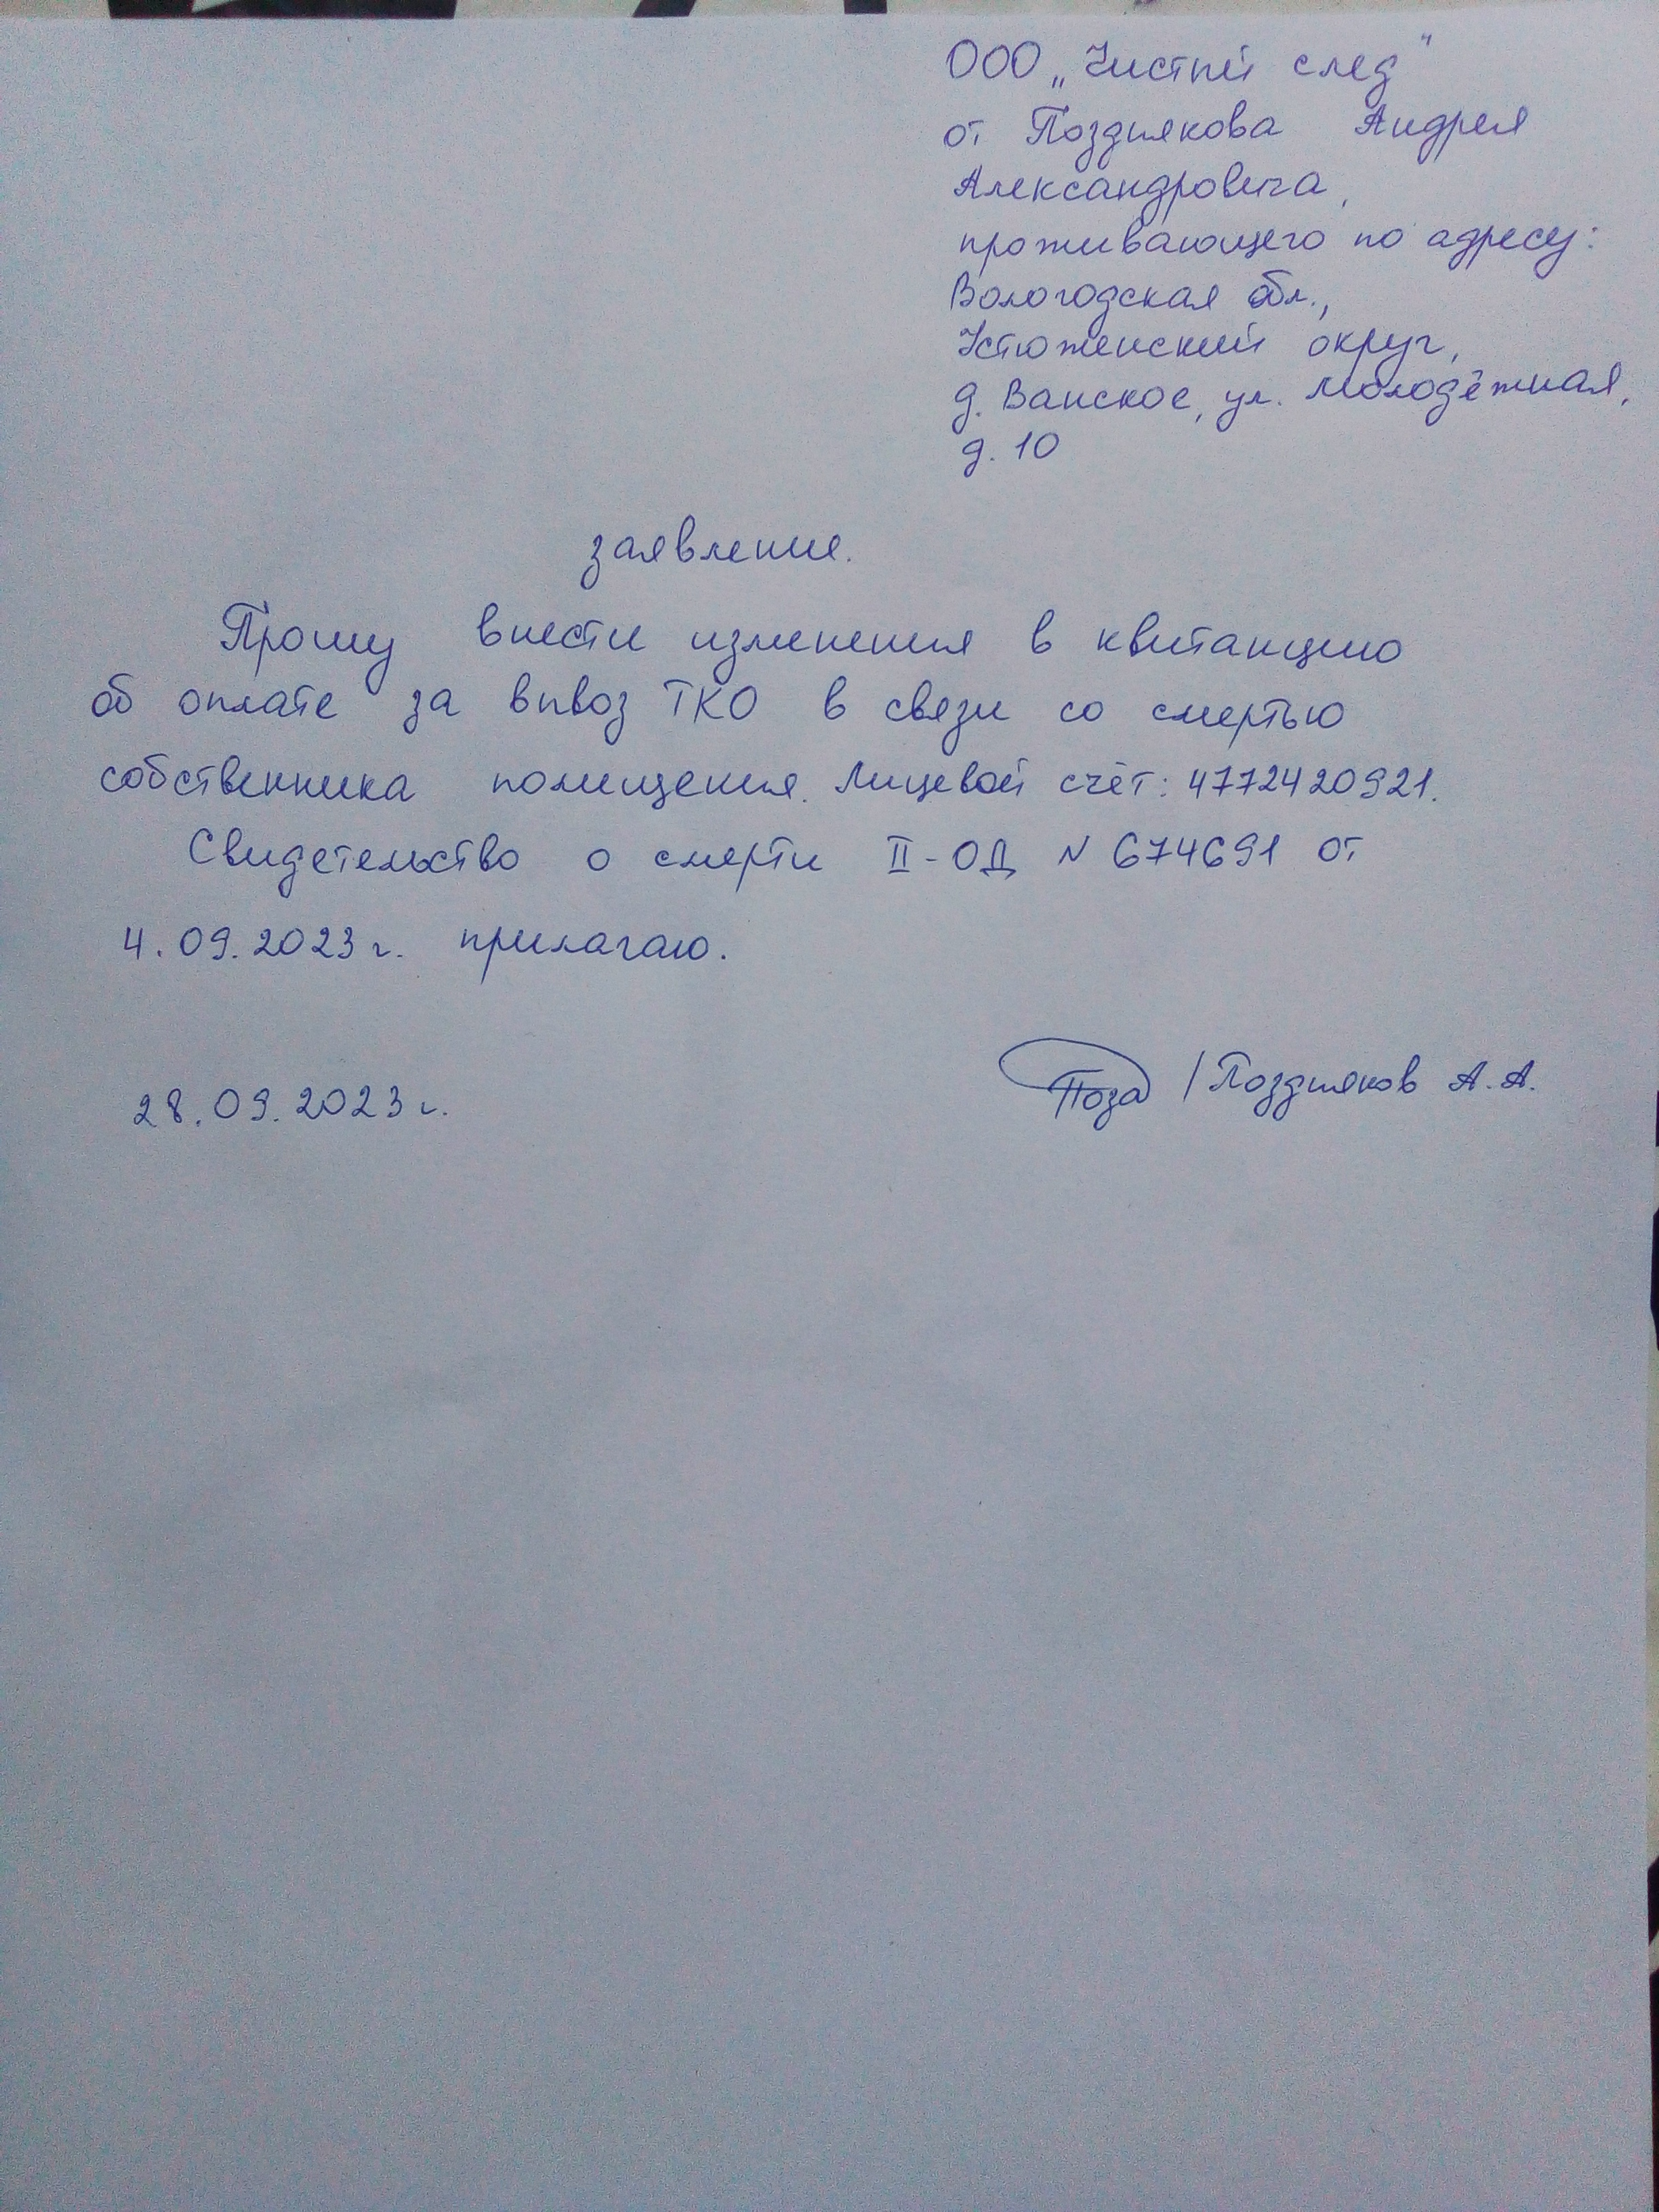 ООО „Чистый след"
от Позднякова Андрея
Александровича,
проживающего по адресу:
Вологодская обл.,
Устюженский округ,
д. Ванское, ул. Молодёжная,
д. 10
заявление.
Прошу внести изменения в квитанцию
об оплате за вывоз ТКО в связи со смертью
собственника помещения. Лицевой счёт: 4772420921.
Свидетельство о смерти II-ОД N 674691 от
4.09.2023 г. прилагаю.
28.09.2023 г.
Позд / Поздняков А.А.